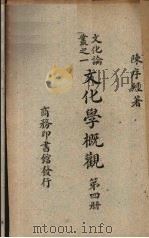 陳序經著
文化論叢之一
文化學概觀
第四册
商務印書館發行